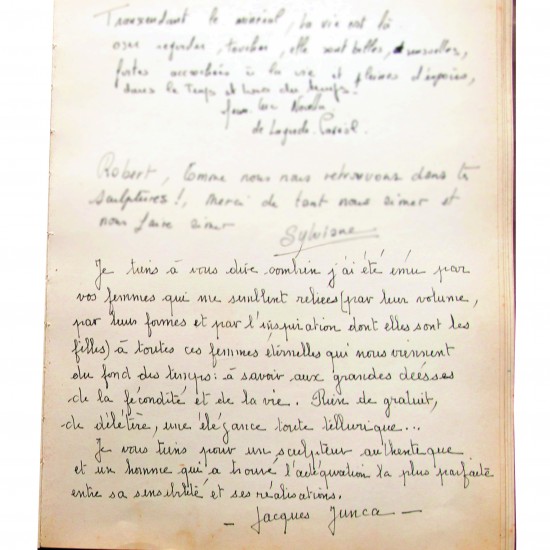 Transcendant le minéral, la vie est là
oser regarder, toucher, elle sont belles, sensuelles,
fortes accrochées à la vie et pleines d'espoir,
dans le Temps et hors du temps!
Jean Luc
de Laguerde
Robert, Comme nous nous retrouvons dans tes
sculptures!, Merci de tant nous aimer et
nous faire aimer
Sylviane
Je tiens à vous dire combien j'ai été ému par
vos femmes qui me semblent reliées (par leur volume,
par leur formes et par l'inspiration dont elles sont les
filles) à toutes ces femmes éternelles qui nous viennent
du fond des temps : à savoir aux grandes déesses
de la fécondité et de la vie. Rien de gratuit,
de délétère, une élégance toute tellurique...
Je vous tiens pour un sculpteur authentique
et un homme qui a trouvé l'adéquation la plus parfaite
entre sa sensibilité et ses réalisations.
- Jacques Junca -